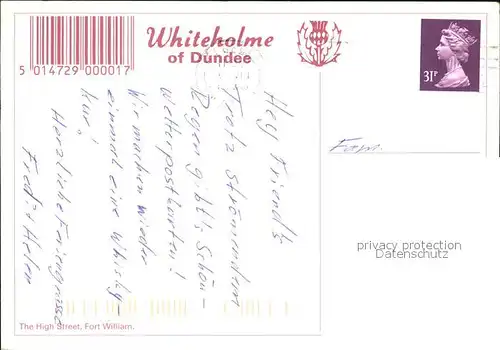 5 014729 000017
Whiteholme
of Dundee
31P
Hey Friends
Trotz Strömendem
Regen gibt's Schön-
wetterpostkarten!
Wir machen wieder
einmal eine Whisky-
kur!
Herzliche Feriengrüsse
Fredi + Helen
Fam.
privacy protection
Datenschutz
The High Street, Fort William.